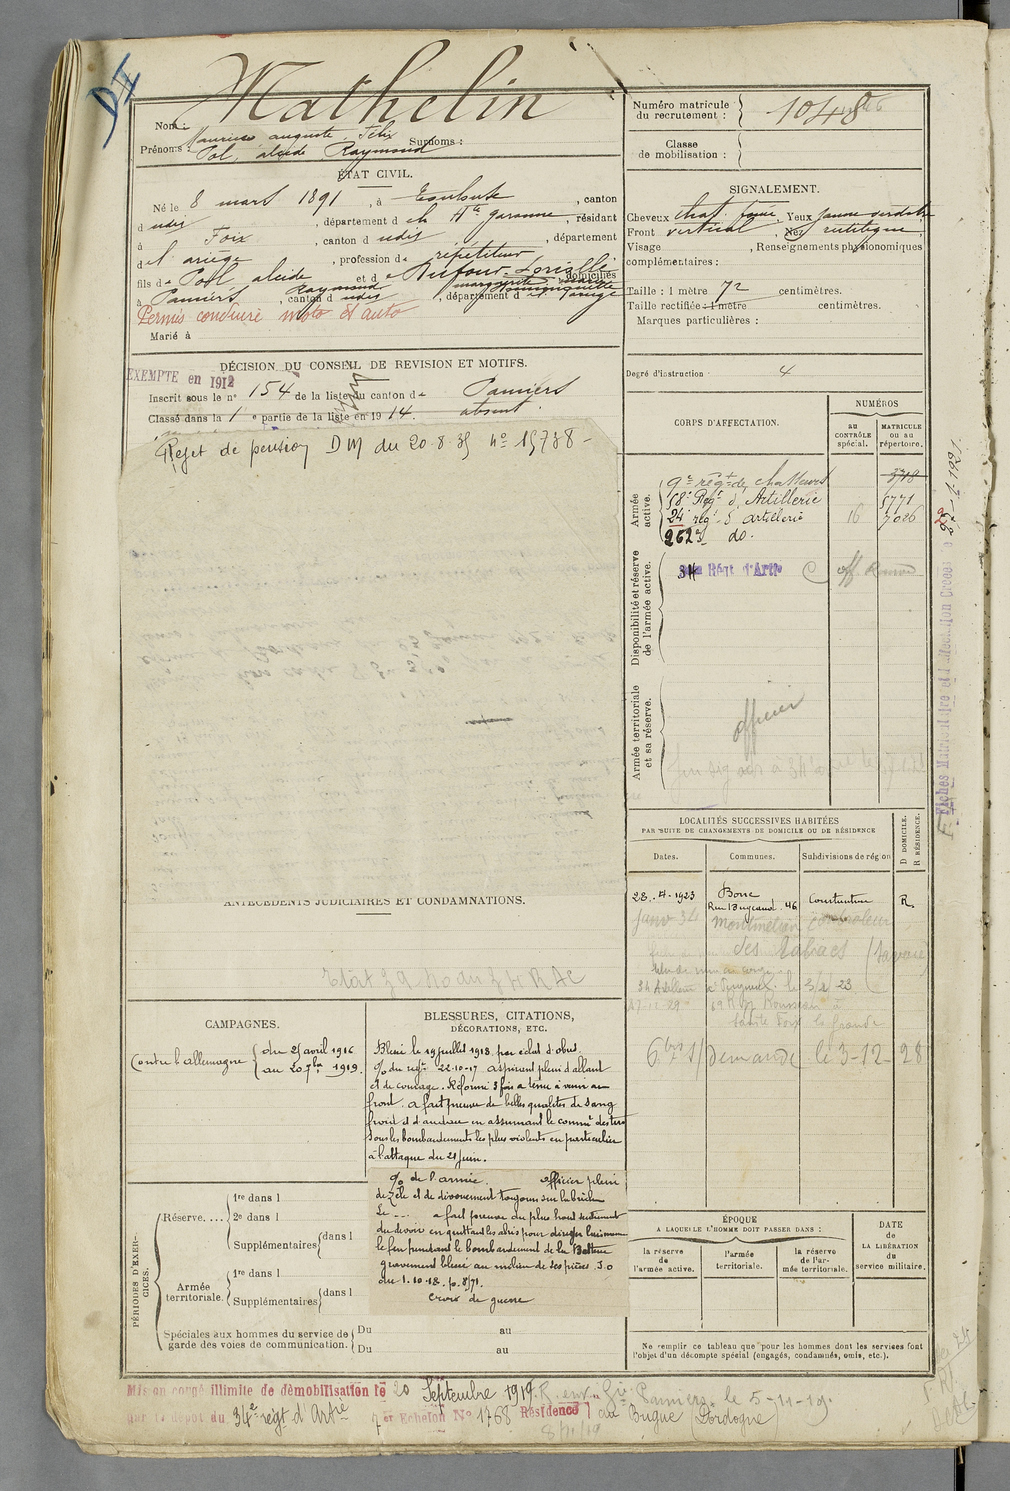 D II
Mathelin
Nom :
Maurice auguste Félix
Prénoms : Pol, alcide Raymond Surnoms :
ÉTAT CIVIL.
Né le 8 mars 1891, à Toulouse, canton
dudit, département de la Hte Garonne, résidant
à Foix, canton dudit, département
de l'ariège, profession de répétiteur
fils de Pol, alcide et de Dufour domiciliés
Raymond marguerite
à Pamiers, canton dudit, département de l'ariège
Permis conduire moto et auto
Marié à
DÉCISION DU CONSEIL DE REVISION ET MOTIFS.
EXEMPTÉ en 1912
Inscrit sous le n° 154 de la liste du canton de Pamiers
Classé dans la 1e partie de la liste en 1914. absent.
Rejet de pension DM du 20.8.35 n° 15738 -
ANTÉCÉDENTS JUDICIAIRES ET CONDAMNATIONS.
CAMPAGNES.
Contre l'allemagne { du 25 avril 1916
au 20 7bre 1919.
BLESSURES, CITATIONS,
DÉCORATIONS, ETC.
Blessé le 19 juillet 1918, par éclat d'obus.
% du régt 22-10-17 aspirant plein d'allant
et de courage. Réformé 3 fois a tenu à venir au
front. a fait preuve de belles qualités de sang
froid et d'audace en assumant le commt des tirs
sous les bombardements les plus violents en particulier
à l'attaque du 21 juin.
% de l'armée. officier plein
de zèle et de dévouement toujours sur la brèche
Le - - - a fait preuve du plus haut sentiment
du devoir en quittant les abris pour diriger lui même
le feu pendant le bombardement de la Batterie
gravement blessé au milieu de ses pièces J.O
du 1.10.18. p. 8571.
Croix de guerre
PÉRIODES D'EXERCICES.
Réserve.... 1re dans l
2e dans l
Supplémentaires dans l
Armée territoriale. 1re dans l
Supplémentaires dans l
Spéciales aux hommes du service de Du au
garde des voies de communication. Du au
Numéro matricule
du recrutement : 1048
Classe
de mobilisation :
SIGNALEMENT.
Cheveux chat. foncé, Yeux jaune verdatre
Front vertical, Nez rectiligne,
Visage, Renseignements physionomiques
complémentaires :
Taille : 1 mètre 72 centimètres.
Taille rectifiée : 1 mètre centimètres.
Marques particulières :
Degré d'instruction : 4
CORPS D'AFFECTATION.
NUMÉROS
au
CONTRÔLE
spécial.
MATRICULE
ou au
répertoire.
Armée
active.
9e régt de chasseurs 3718
58e Régt d'Artillerie 5771
24 régt d'artillerie 16 7026
262e do.
Disponibilité et réserve
de l'armée active.
34 Régt d'Artie
Armée territoriale
et sa réserve.
officier
LOCALITÉS SUCCESSIVES HABITÉES
PAR SUITE DE CHANGEMENTS DE DOMICILE OU DE RÉSIDENCE
Dates. Communes. Subdivisions de région
D DOMICILE.
R RÉSIDENCE.
28.4.1923 Bone Constantine R.
Rue Bugeaud. 46
janv 34 montmélian
des Tabacs (Savoie)
Sainte Foix la Grande
demande le 3-12-28
ÉPOQUE
A LAQUELLE L'HOMME DOIT PASSER DANS :
la réserve
de
l'armée active.
l'armée
territoriale.
la réserve
de l'armée
territoriale.
DATE
de
LA LIBÉRATION
du
service militaire.
Ne remplir ce tableau que pour les hommes dont les services font
l'objet d'un décompte spécial (engagés, condamnés, omis, etc.).
Mis en congé illimité de démobilisation le 20 Septembre 1919. R. env. Gie Pamiers le 5-11-19.
par le dépôt du 34e régt d'Artie 7e Echelon N° 1768 Résidence au Bugue (Dordogne)